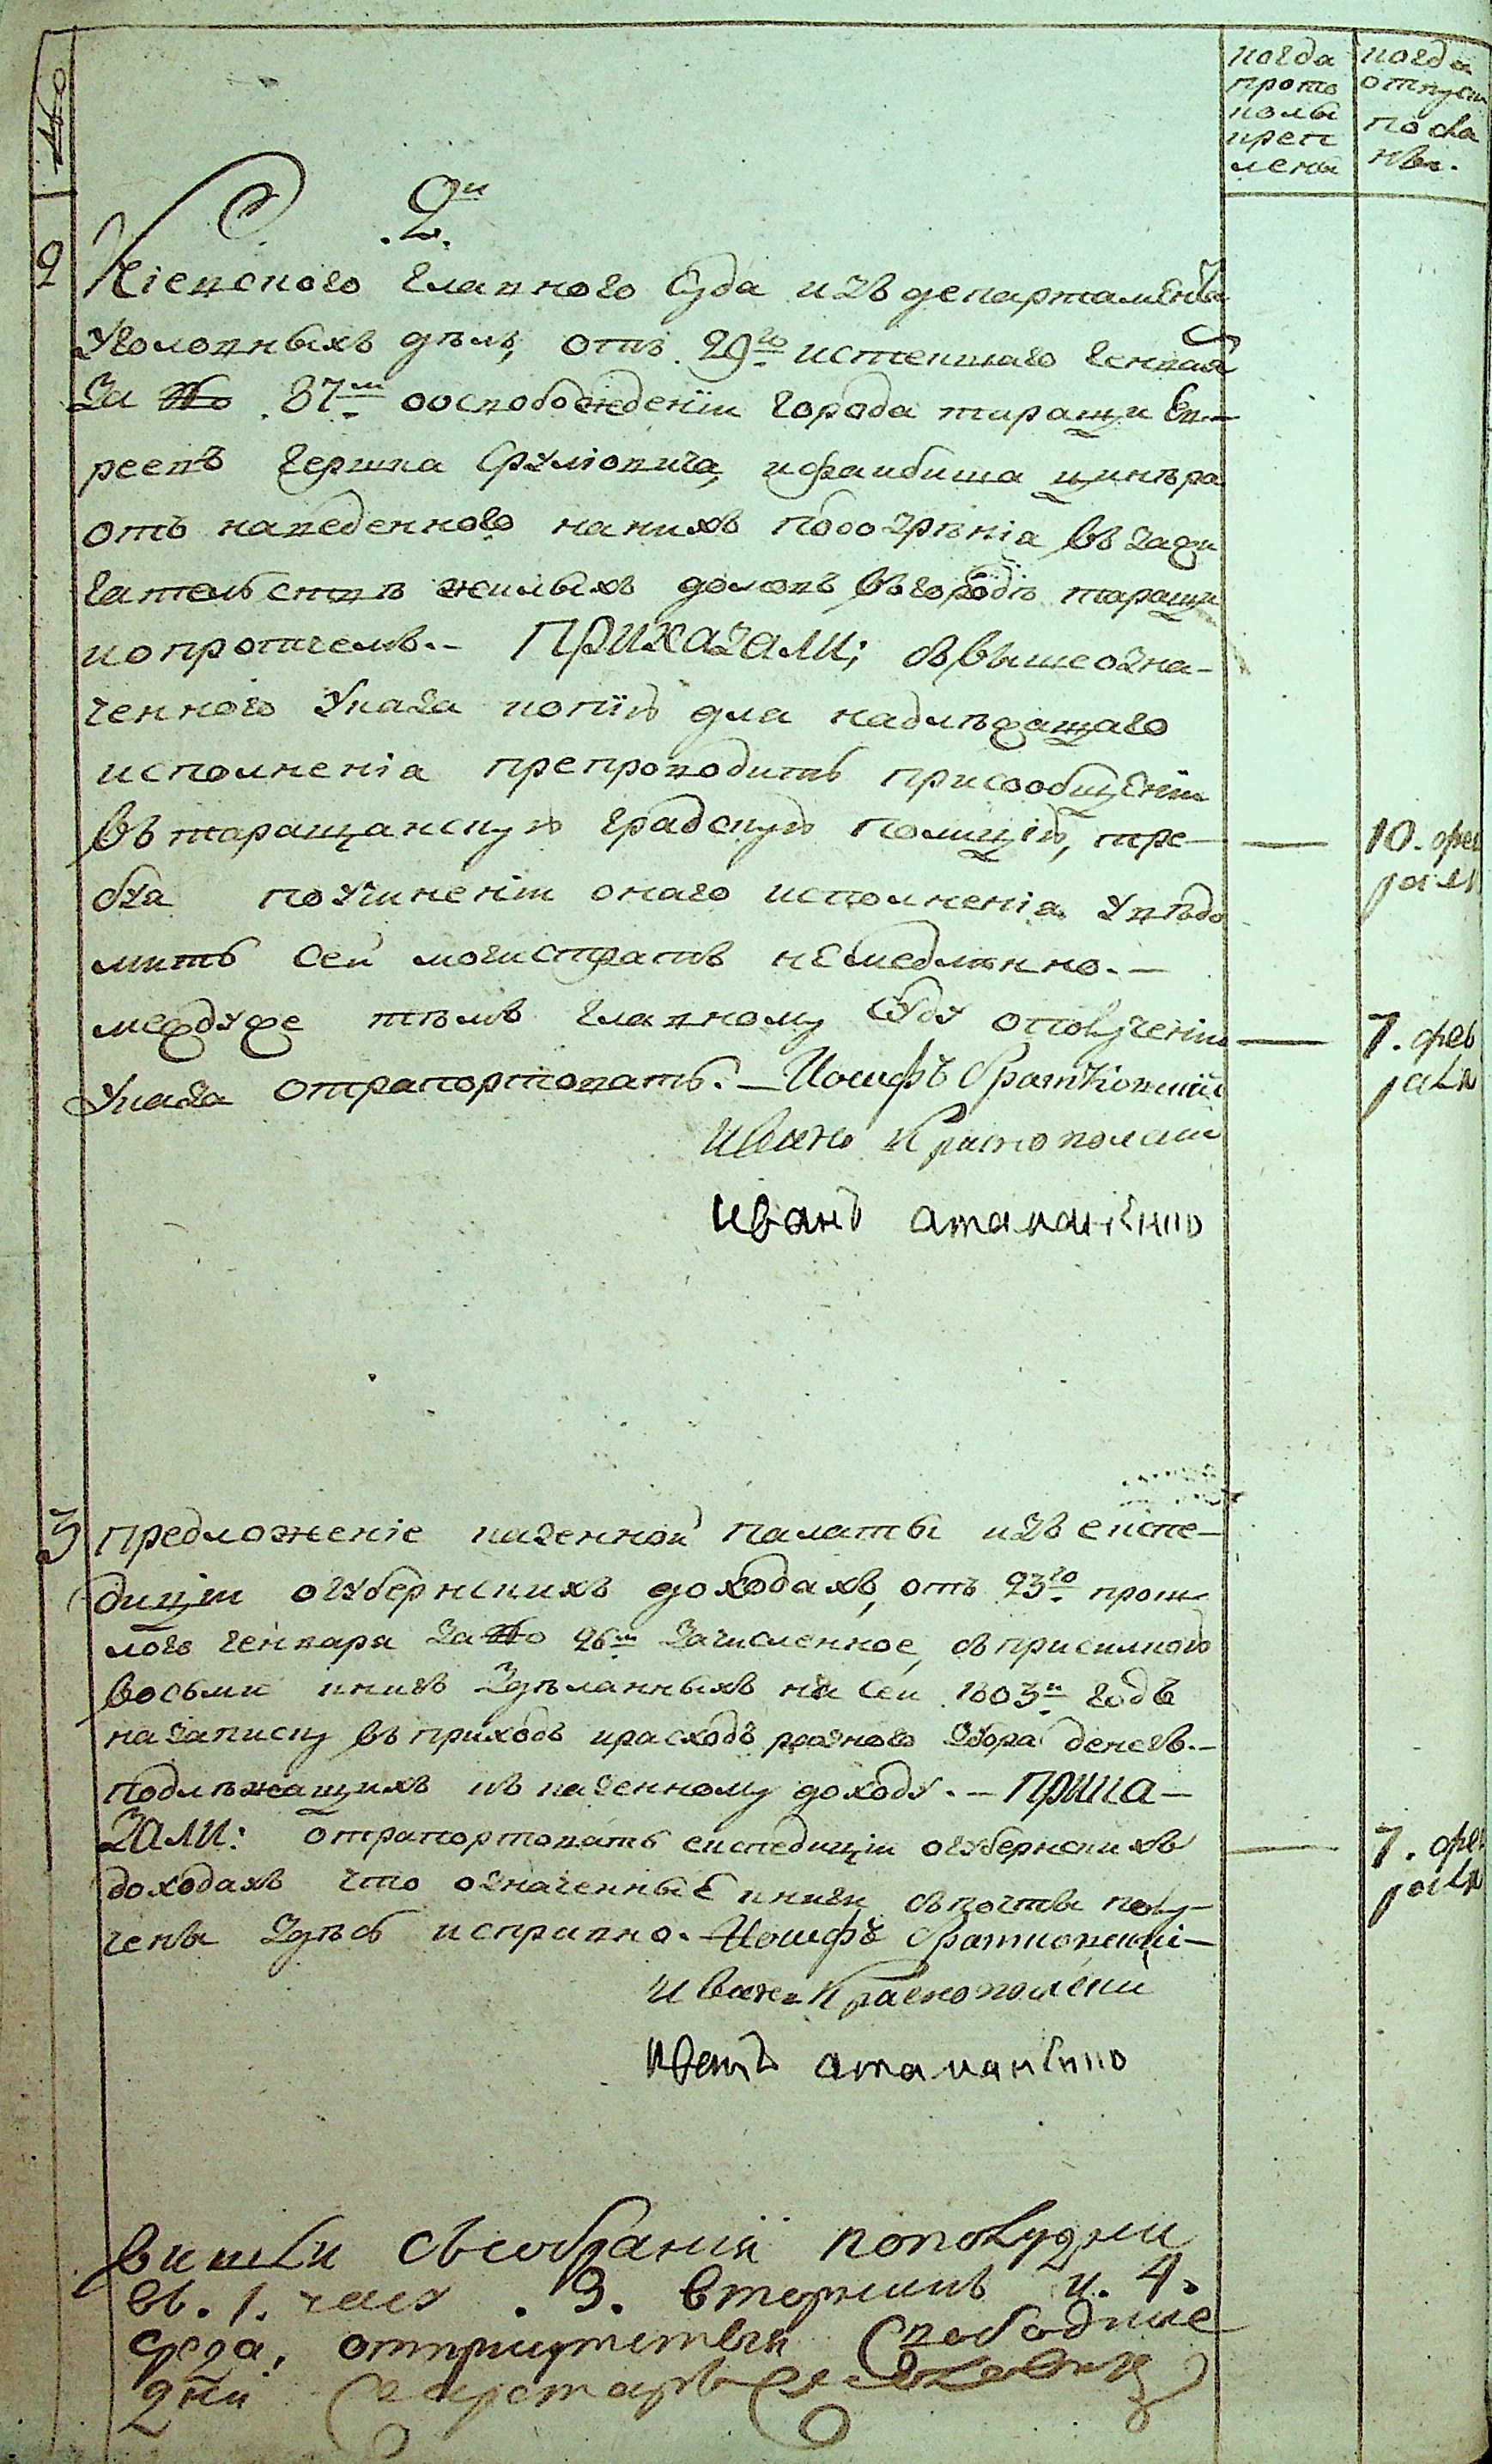 №
когда
прото
колы
креп
лены
когда
отпуск
посла
нъ.
2й
2
Кіевского главного Суда изъ департамента
Уголовныхъ дѣлъ, отъ 29го истекшаго генваря
За № 87м оосвобожденіи города таращи Ев-
реевъ гершка Срулiовича, ифаибиша цинѣра
отъ наведенного наних подозрѣнія въ зажи
гательствѣ жилыхъ домовъ въгородѣ таращи
ипротчемъ.- Приказали; съвышеозна-
ченного Указа копію для надлѣжащаго
исполненія препроводить присообщеніи
въ таращанскую градскую полицію, тре-
буя поучиненіи онаго исполненія увѣдо
мить сей магистратъ немедлѣнно.-
междуже тѣмъ главному Суду ополученіи
Указа отрапортовать. - Иосифъ Братковскій
Иванъ Краснополскій
иванъ атаманенко
10. фев
раля
7. фев
раля
3
предложеніе казенной палаты изъ експе-
диціи огубернскихъ доходахъ, отъ 23го прош
лого генваря за № 26м зачисленное, съприсилкою
восьми книгъ Здѣланныхъ на сей 1803й годъ
назаписку въ приходъ ирасходъ разного збора денегъ.-
подлѣжащихъ къ казенному доходу. - Прика-
зали: отрапортовать експедиціи огубернскихъ
доходахъ что означенные книги съпочты полу-
чены здѣсь исправно. - Иосифъ Братковскій-
Иванъ Краснополскій
иванъ атаманенко
7. фев
раля
вишли съсобранія пополудни
въ. 1. часу . 3. вторникъ и. 4.
среда, отприсутствія свободние
дни Секретарь